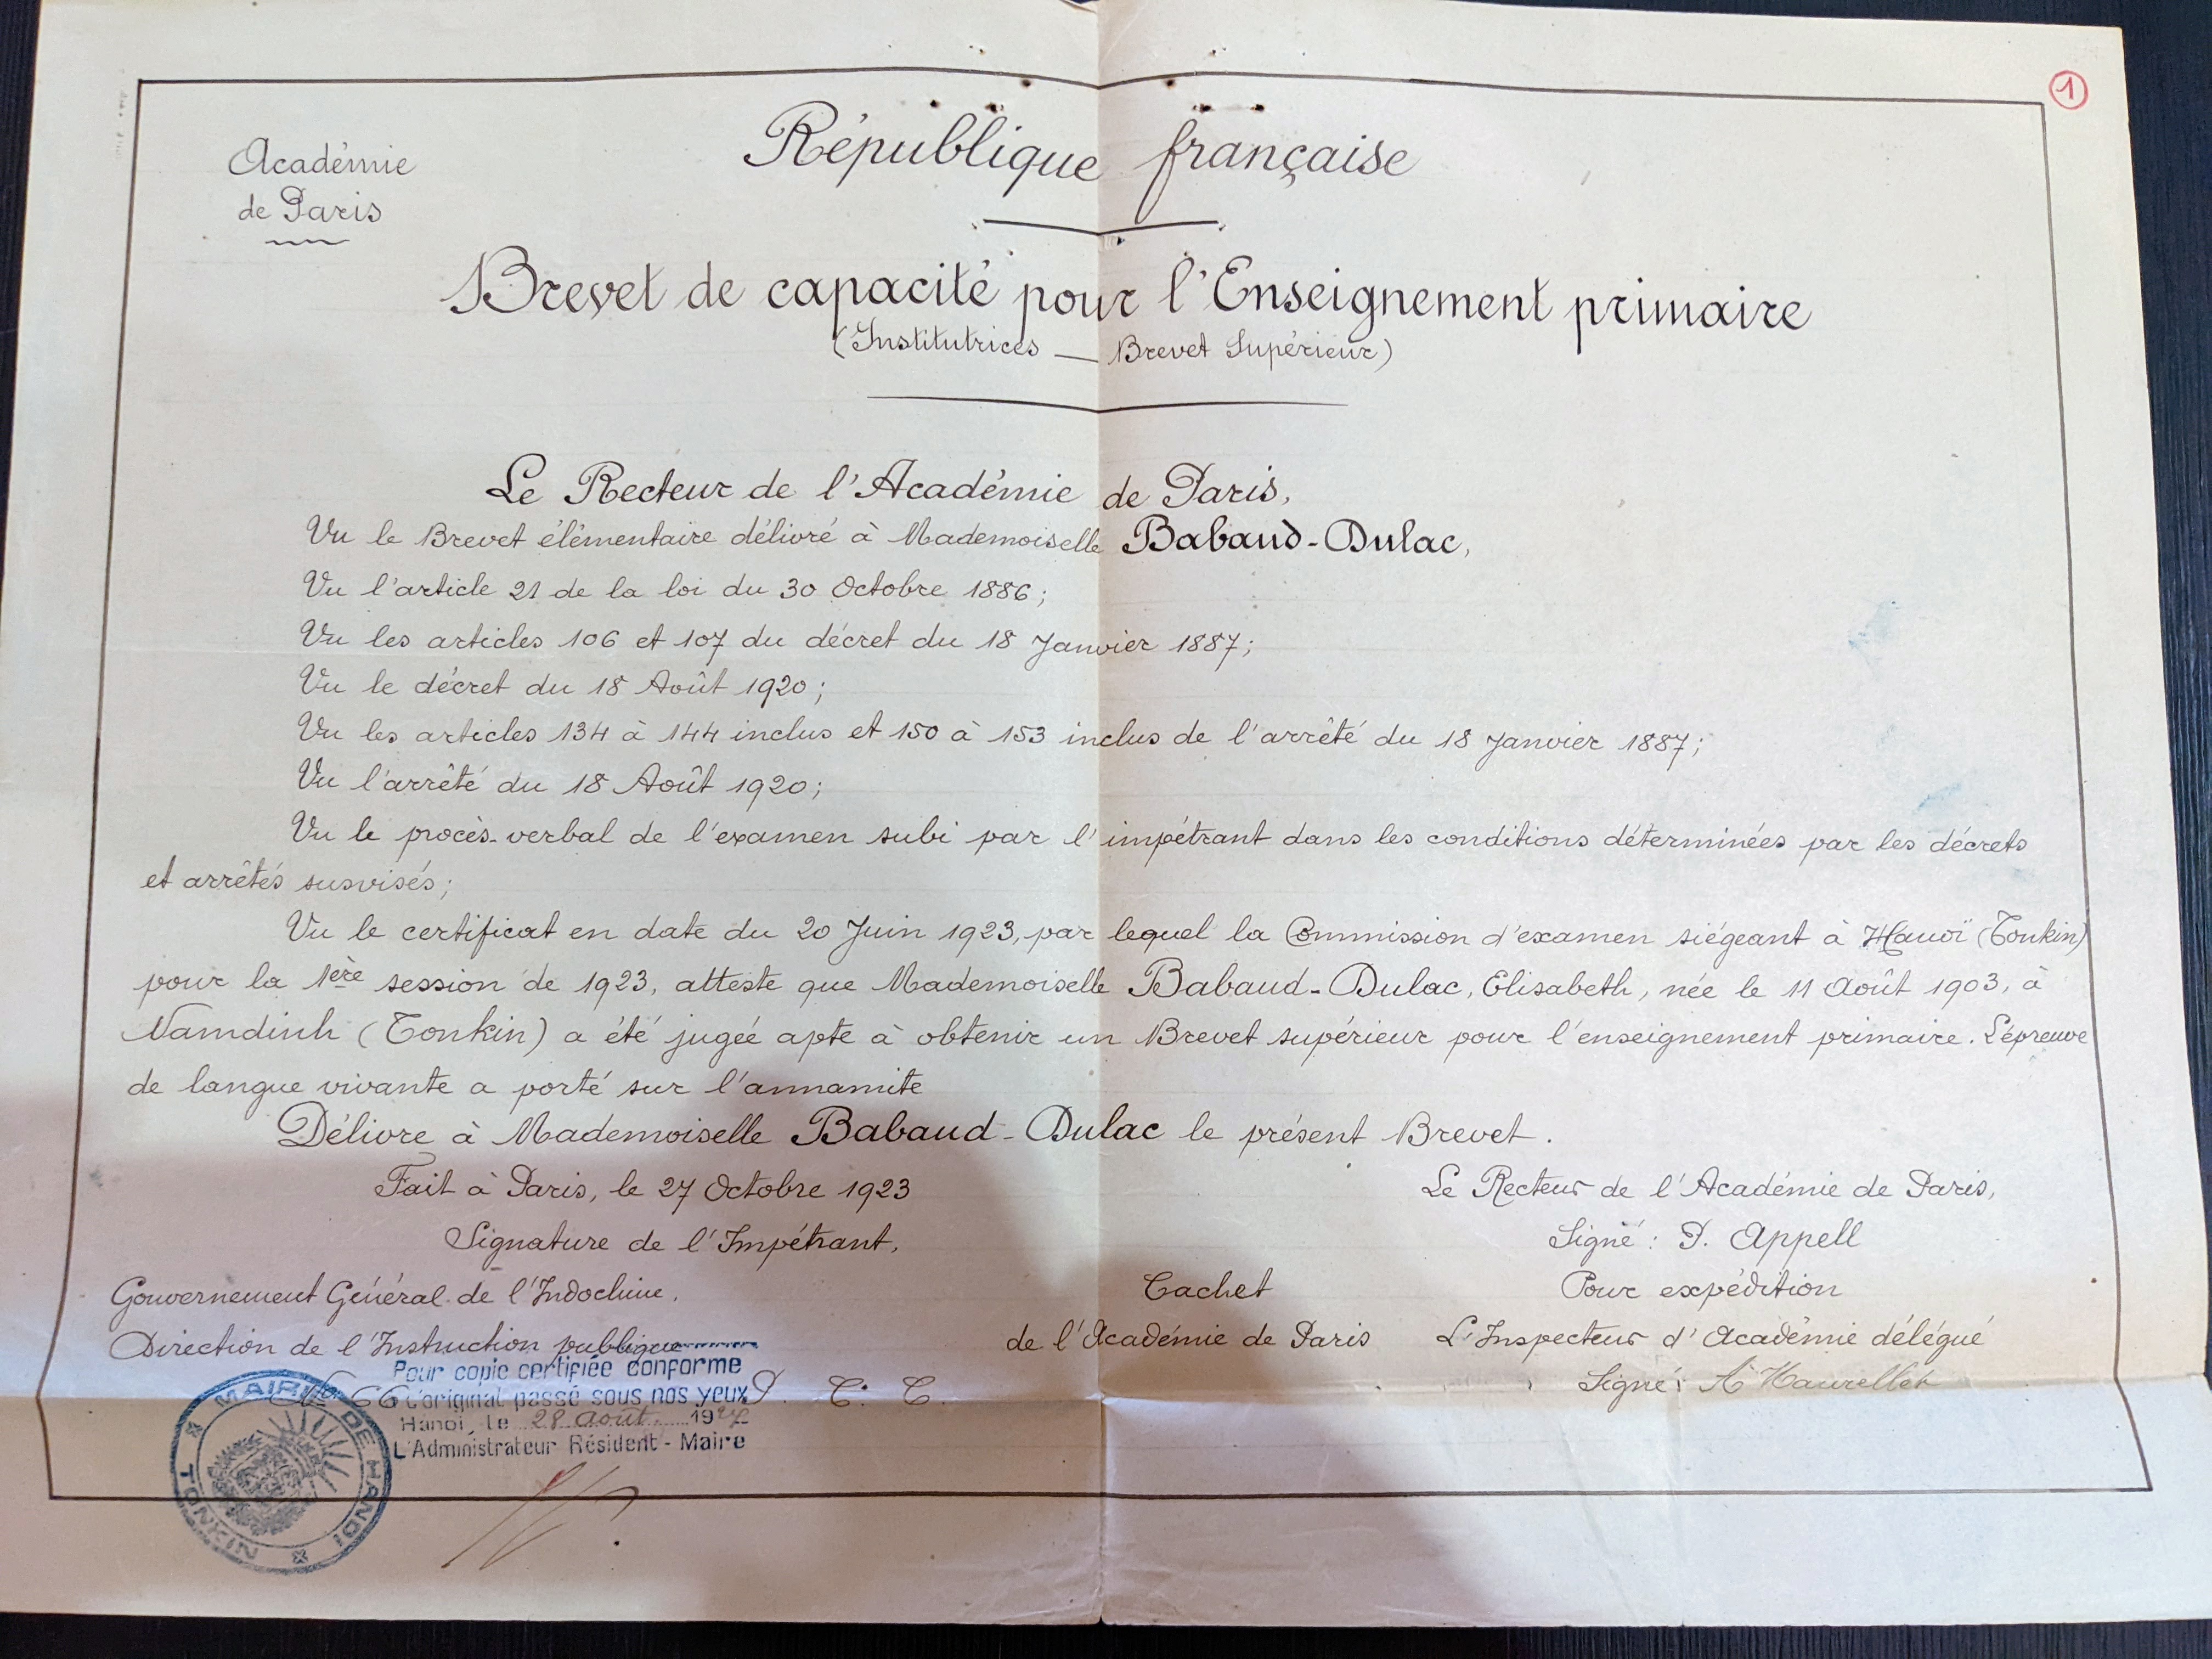 1
Académie
de Paris
République française
Brevet de capacité pour l'Enseignement primaire
(Institutrices — Brevet Supérieur)
Le Recteur de l'Académie de Paris,
Vu le Brevet élémentaire délivré à Mademoiselle Babaud-Dulac,
Vu l'article 21 de la loi du 30 Octobre 1886;
Vu les articles 106 et 107 du décret du 18 Janvier 1887;
Vu le décret du 18 Août 1920;
Vu les articles 134 à 144 inclus et 150 à 153 inclus de l'arrêté du 18 Janvier 1887;
Vu l'arrêté du 18 Août 1920;
Vu le procès-verbal de l'examen subi par l'impétrant dans les conditions déterminées par les décrets
et arrêtés susvisés;
Vu le certificat en date du 20 Juin 1923, par lequel la Commission d'examen siégeant à Hanoï (Tonkin)
pour la 1ère session de 1923, atteste que Mademoiselle Babaud-Dulac, Elisabeth, née le 11 Août 1903, à
Namdinh (Tonkin) a été jugée apte à obtenir un Brevet supérieur pour l'enseignement primaire. L'épreuve
de langue vivante a porté sur l'annamite
Délivre à Mademoiselle Babaud-Dulac le présent Brevet.
Fait à Paris, le 27 Octobre 1923
Signature de l'Impétrant,
Le Recteur de l'Académie de Paris,
Signé: P. Appell
Pour expédition
L'Inspecteur d'Académie délégué
Signé:
Cachet
de l'Académie de Paris
Gouvernement Général de l'Indochine.
Direction de l'Instruction publique
T. C.
Pour copie certifiée conforme
l'original passé sous nos yeux
Hanoi, le 28 Août 1927
L'Administrateur Résident-Maire
MAIRIE DE HANOI
TONKIN